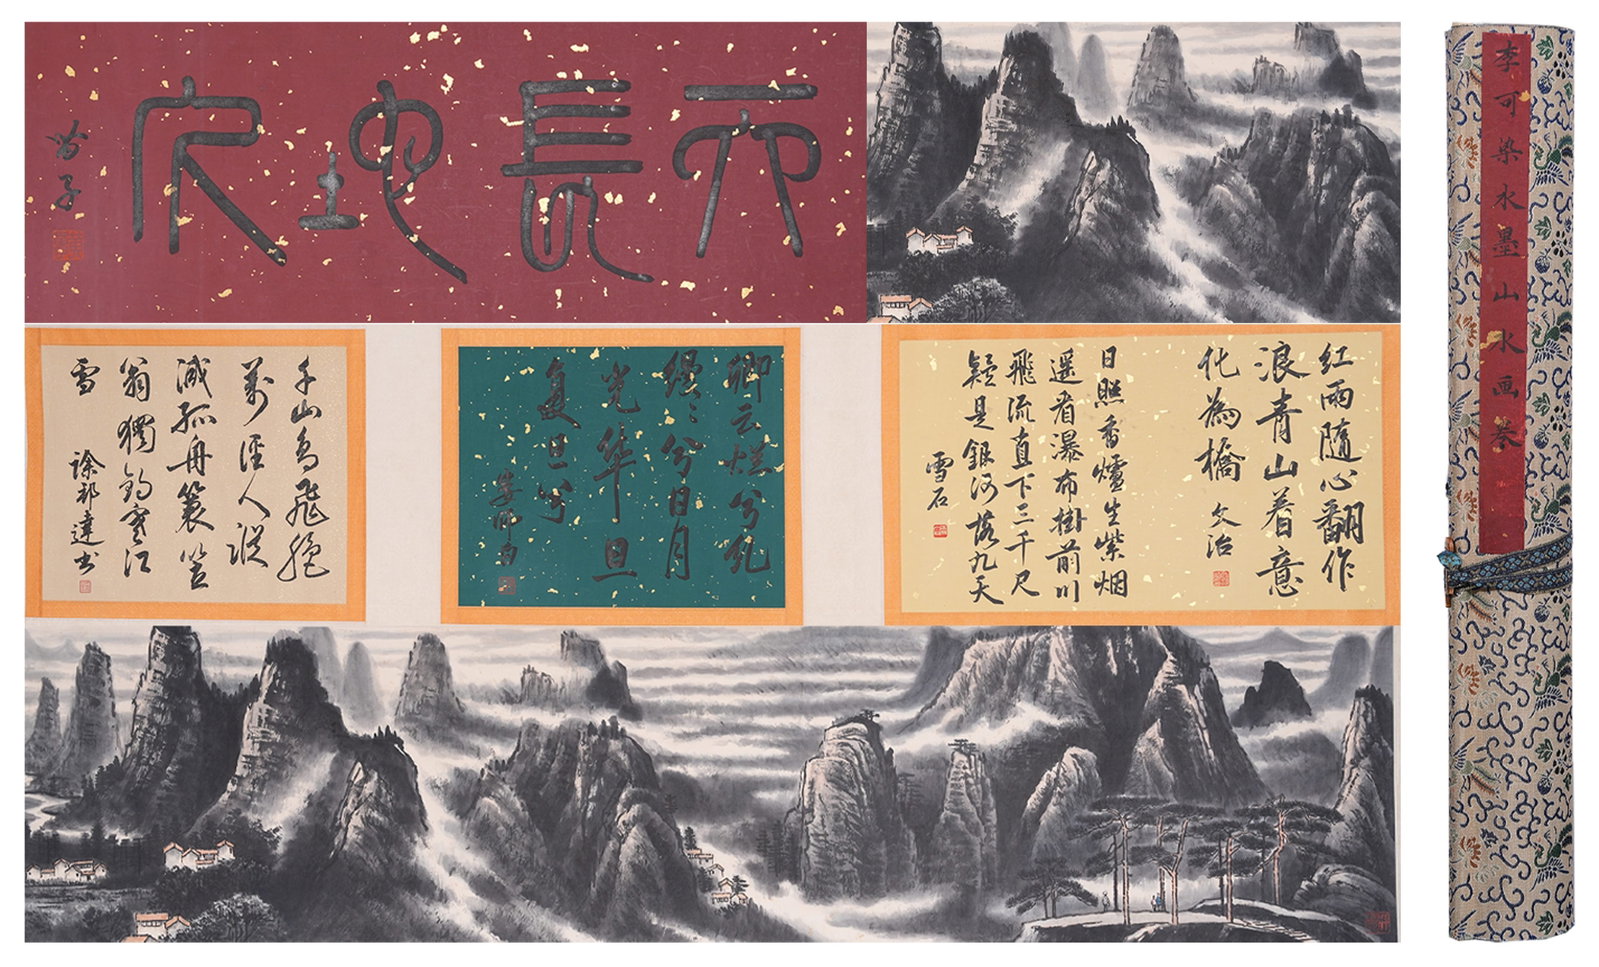 天長地久
李可染水墨山水画卷
红雨随心翻作
浪青山着意
化為橋
文治
日照香爐生紫烟
遥看瀑布掛前川
飛流直下三千尺
疑是銀河落九天
雪石
卿云爛兮糺
缦々兮日月
光華旦
复旦兮
婁師白
千山鳥飛絶
萬徑人踪
滅孤舟簑笠
翁獨釣寒江
雪
徐邦達书